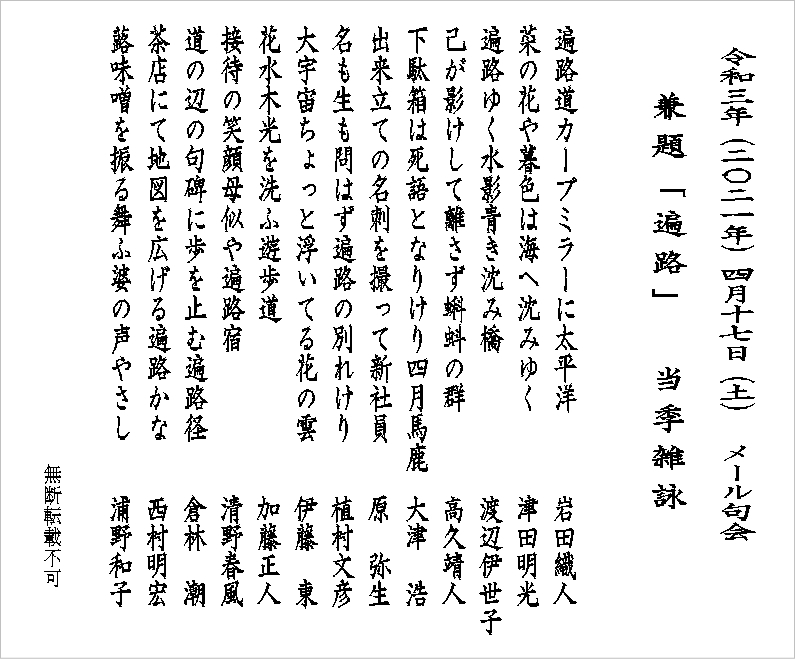 令和三年(二〇二一年)四月十七日(土) メール句会
兼題「遍路」 当季雑詠
遍路道カーブミラーに太平洋 岩田織人
菜の花や暮色は海へ沈みゆく 津田明光
遍路ゆく水影青き沈み橋 渡辺伊世子
己が影けして離さず蝌蚪の群 高久靖人
下駄箱は死語となりけり四月馬鹿 大津 浩
出来立ての名刺を撮って新社員 原 弥生
名も生も問はず遍路の別れけり 植村文彦
大宇宙ちょっと浮いてる花の雲 伊藤 東
花水木光を洗ふ遊歩道 加藤正人
接待の笑顔母似や遍路宿 清野春風
道の辺の句碑に歩を止む遍路径 倉林 潮
茶店にて地図を広げる遍路かな 西村明宏
蕗味噌を振る舞ふ婆の声やさし 浦野和子
無断転載不可